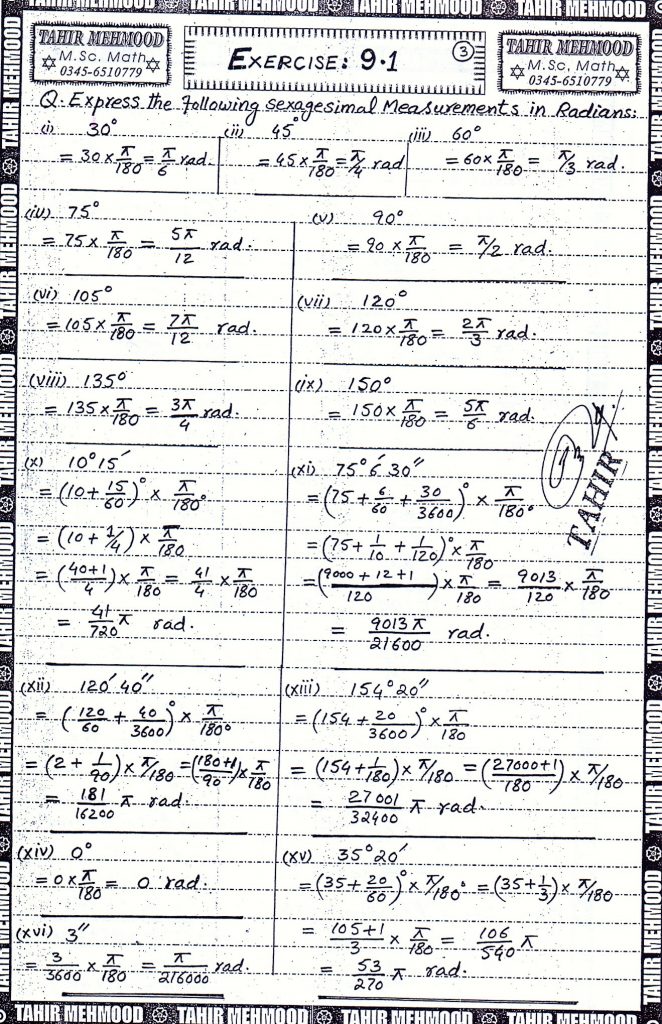 TAHIR MEHMOOD TAHIR MEHMOOD TAHIR MEHMOOD TAHIR MEHMOOD
TAHIR MEHMOOD
M.Sc. Math
0345-6510779
EXERCISE: 9.1
3
TAHIR MEHMOOD
M.Sc. Math
0345-6510779
Q. Express the following sexagesimal Measurements in Radians:
(i) 30°
= 30 × π/180 = π/6 rad.
(ii) 45°
= 45 × π/180 = π/4 rad
(iii) 60°
= 60 × π/180 = π/3 rad.
(iv) 75°
= 75 × π/180 = 5π/12 rad.
(v) 90°
= 90 × π/180 = π/2 rad.
(vi) 105°
= 105 × π/180 = 7π/12 rad.
(vii) 120°
= 120 × π/180 = 2π/3 rad.
(viii) 135°
= 135 × π/180 = 3π/4 rad.
(ix) 150°
= 150 × π/180 = 5π/6 rad.
(x) 10° 15′
= (10 + 15/60)° × π/180°
= (10 + 1/4) × π/180
= (40+1/4) × π/180 = 41/4 × π/180
= 41/720 π rad.
(xi) 75° 6′ 30″
= (75 + 6/60 + 30/3600)° × π/180°
= (75 + 1/10 + 1/120)° × π/180
= (9000 + 12 + 1/120) × π/180 = 9013/120 × π/180
= 9013π/21600 rad.
TAHIR
(xii) 120′ 40″
= (120/60 + 40/3600)° × π/180°
= (2 + 1/90) × π/180 = (180+1/90) × π/180
= 181/16200 π rad.
(xiii) 154° 20″
= (154 + 20/3600)° × π/180
= (154 + 1/180) × π/180 = (27000+1/180) × π/180
= 27001/32400 π rad.
(xiv) 0°
= 0 × π/180 = 0 rad.
(xv) 35° 20′
= (35 + 20/60)° × π/180° = (35 + 1/3) × π/180
= 105+1/3 × π/180 = 106/540 π
= 53/270 π rad.
(xvi) 3″
= 3/3600 × π/180 = π/216000 rad.
TAHIR MEHMOOD TAHIR MEHMOOD TAHIR MEHMOOD TAHIR MEHMOOD